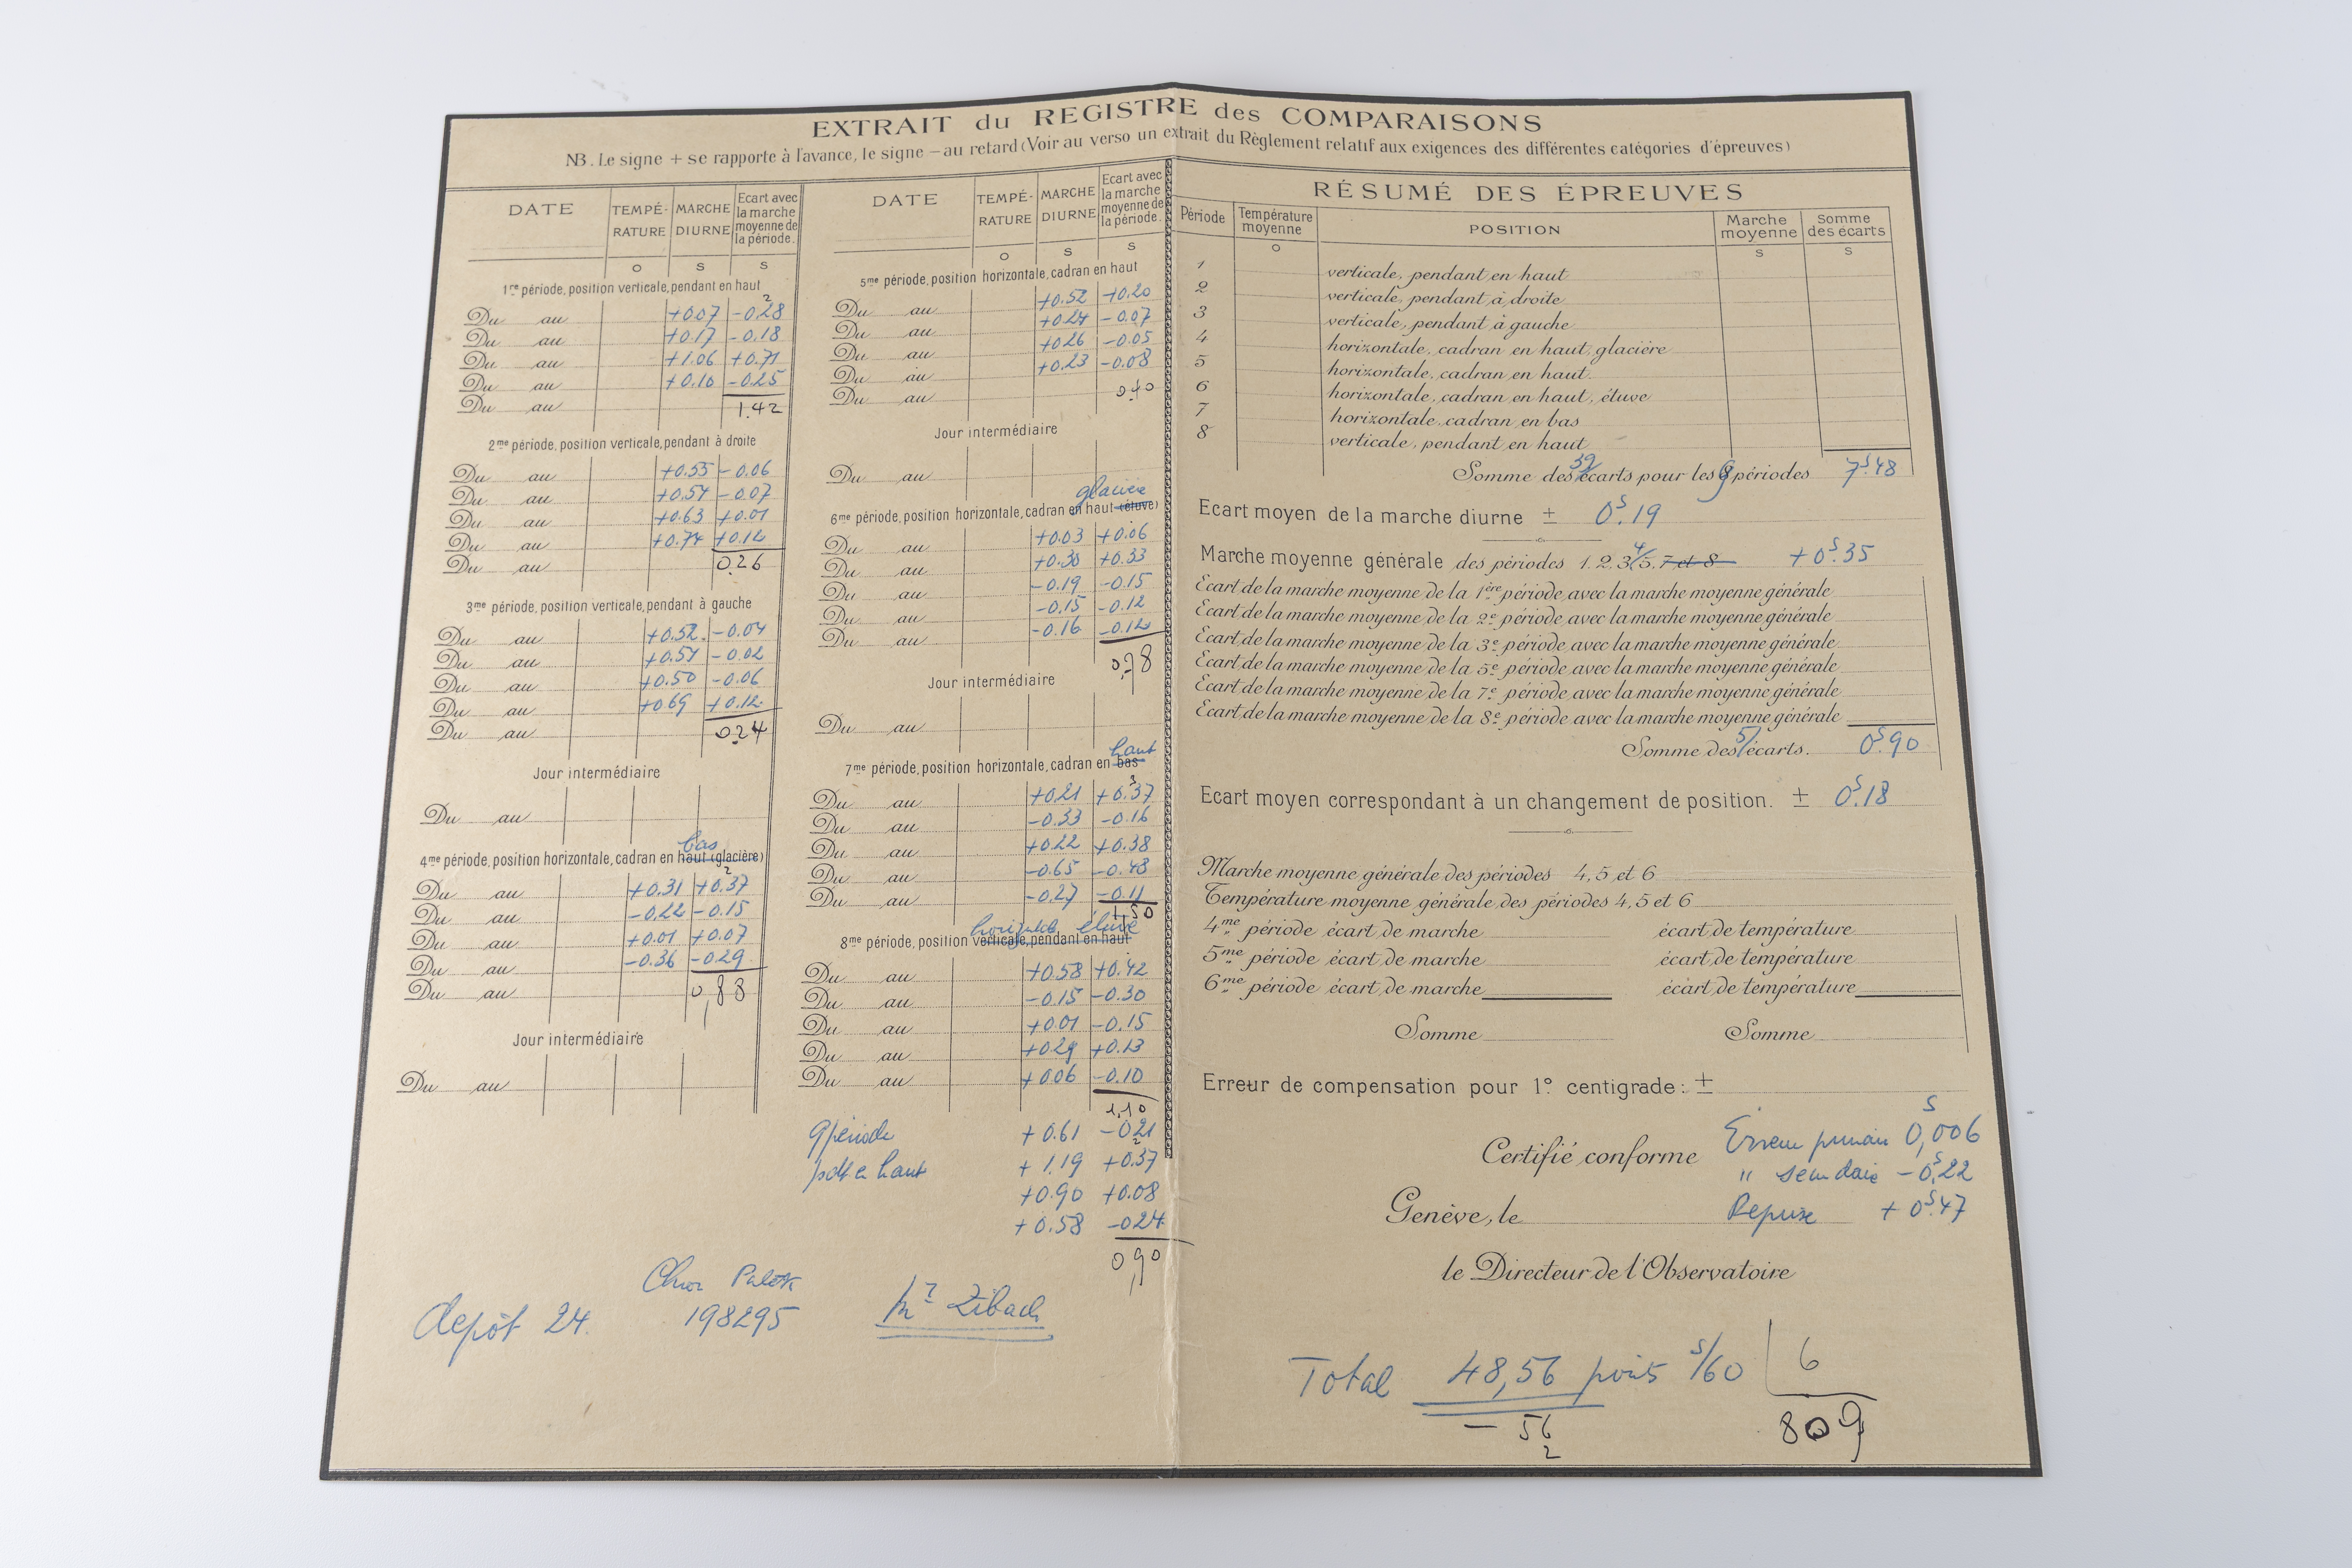 EXTRAIT du REGISTRE des COMPARAISONS
NB. Le signe + se rapporte à l'avance, le signe – au retard (Voir au verso un extrait du Règlement relatif aux exigences des différentes catégories d'épreuves)
DATE TEMPÉRATURE MARCHE DIURNE Ecart avec la marche moyenne de la période.
o s s
1re période, position verticale, pendant en haut
Du au +0.07 -0.28
Du au +0.17 -0.18
Du au +1.06 +0.71
Du au +0.10 -0.25
Du au 1.42
2me période, position verticale, pendant à droite
Du au +0.55 -0.06
Du au +0.54 -0.07
Du au +0.63 +0.01
Du au +0.74 +0.12
Du au 0.26
3me période, position verticale, pendant à gauche
Du au +0.52 -0.04
Du au +0.54 -0.02
Du au +0.50 -0.06
Du au +0.69 +0.12
Du au 0.24
Jour intermédiaire
Du au
bas
4me période, position horizontale, cadran en haut (glacière)
Du au +0.31 +0.37
Du au -0.22 -0.15
Du au +0.01 +0.07
Du au -0.36 -0.29
Du au 0,88
Jour intermédiaire
Du au
DATE TEMPÉRATURE MARCHE DIURNE Ecart avec la marche moyenne de la période.
o s s
5me période, position horizontale, cadran en haut
Du au +0.52 +0.20
Du au +0.24 -0.07
Du au +0.26 -0.05
Du au +0.23 -0.08
Du au 0.40
Jour intermédiaire
Du au
glacière
6me période, position horizontale, cadran en haut (étuve)
Du au +0.03 +0.06
Du au +0.30 +0.33
Du au -0.19 -0.15
Du au -0.15 -0.12
Du au -0.16 -0.12
0,78
Jour intermédiaire
Du au
haut
7me période, position horizontale, cadran en bas
Du au +0.21 +0.37
Du au -0.33 -0.16
Du au +0.22 +0.38
Du au -0.65 -0.48
Du au -0.27 -0.11
1,50
étuve
8me période, position verticale, pendant en haut
Du au +0.58 +0.42
Du au -0.15 -0.30
Du au +0.01 -0.15
Du au +0.29 +0.13
Du au +0.06 -0.10
1,10
9 période +0.61 -0.21
en haut +1.19 +0.37
+0.90 +0.08
+0.58 -0.24
0,90
depôt 24. 198295
RÉSUMÉ DES ÉPREUVES
Période Température moyenne POSITION Marche moyenne Somme des écarts
o s s
1 verticale, pendant en haut
2 verticale, pendant à droite
3 verticale, pendant à gauche
4 horizontale, cadran en haut, glacière
5 horizontale, cadran en haut.
6 horizontale, cadran en haut, étuve
7 horizontale, cadran en bas
8 verticale, pendant en haut
Somme des 39 écarts pour les 9 périodes 7s.48
Ecart moyen de la marche diurne ± 0s.19
Marche moyenne générale des périodes 1, 2, 3, 4, 5, 7 et 8 +0s.35
Ecart de la marche moyenne de la 1ère période avec la marche moyenne générale
Ecart de la marche moyenne de la 2e période avec la marche moyenne générale
Ecart de la marche moyenne de la 3e période avec la marche moyenne générale
Ecart de la marche moyenne de la 5e période avec la marche moyenne générale
Ecart de la marche moyenne de la 7e période avec la marche moyenne générale
Ecart de la marche moyenne de la 8e période avec la marche moyenne générale
Somme des 5 écarts. 0s.90
Ecart moyen correspondant à un changement de position. ± 0s.18
Marche moyenne générale des périodes 4, 5 et 6
Température moyenne générale des périodes 4, 5 et 6
4me période écart de marche écart de température
5me période écart de marche écart de température
6me période écart de marche écart de température
Somme Somme
Erreur de compensation pour 1° centigrade: ±
Certifié conforme
Erreur 0s,006
" -0s,22
Genève, le
Reprise +0s.47
le Directeur de l'Observatoire
Total 48,56 points s/60 6
- 56 809
2